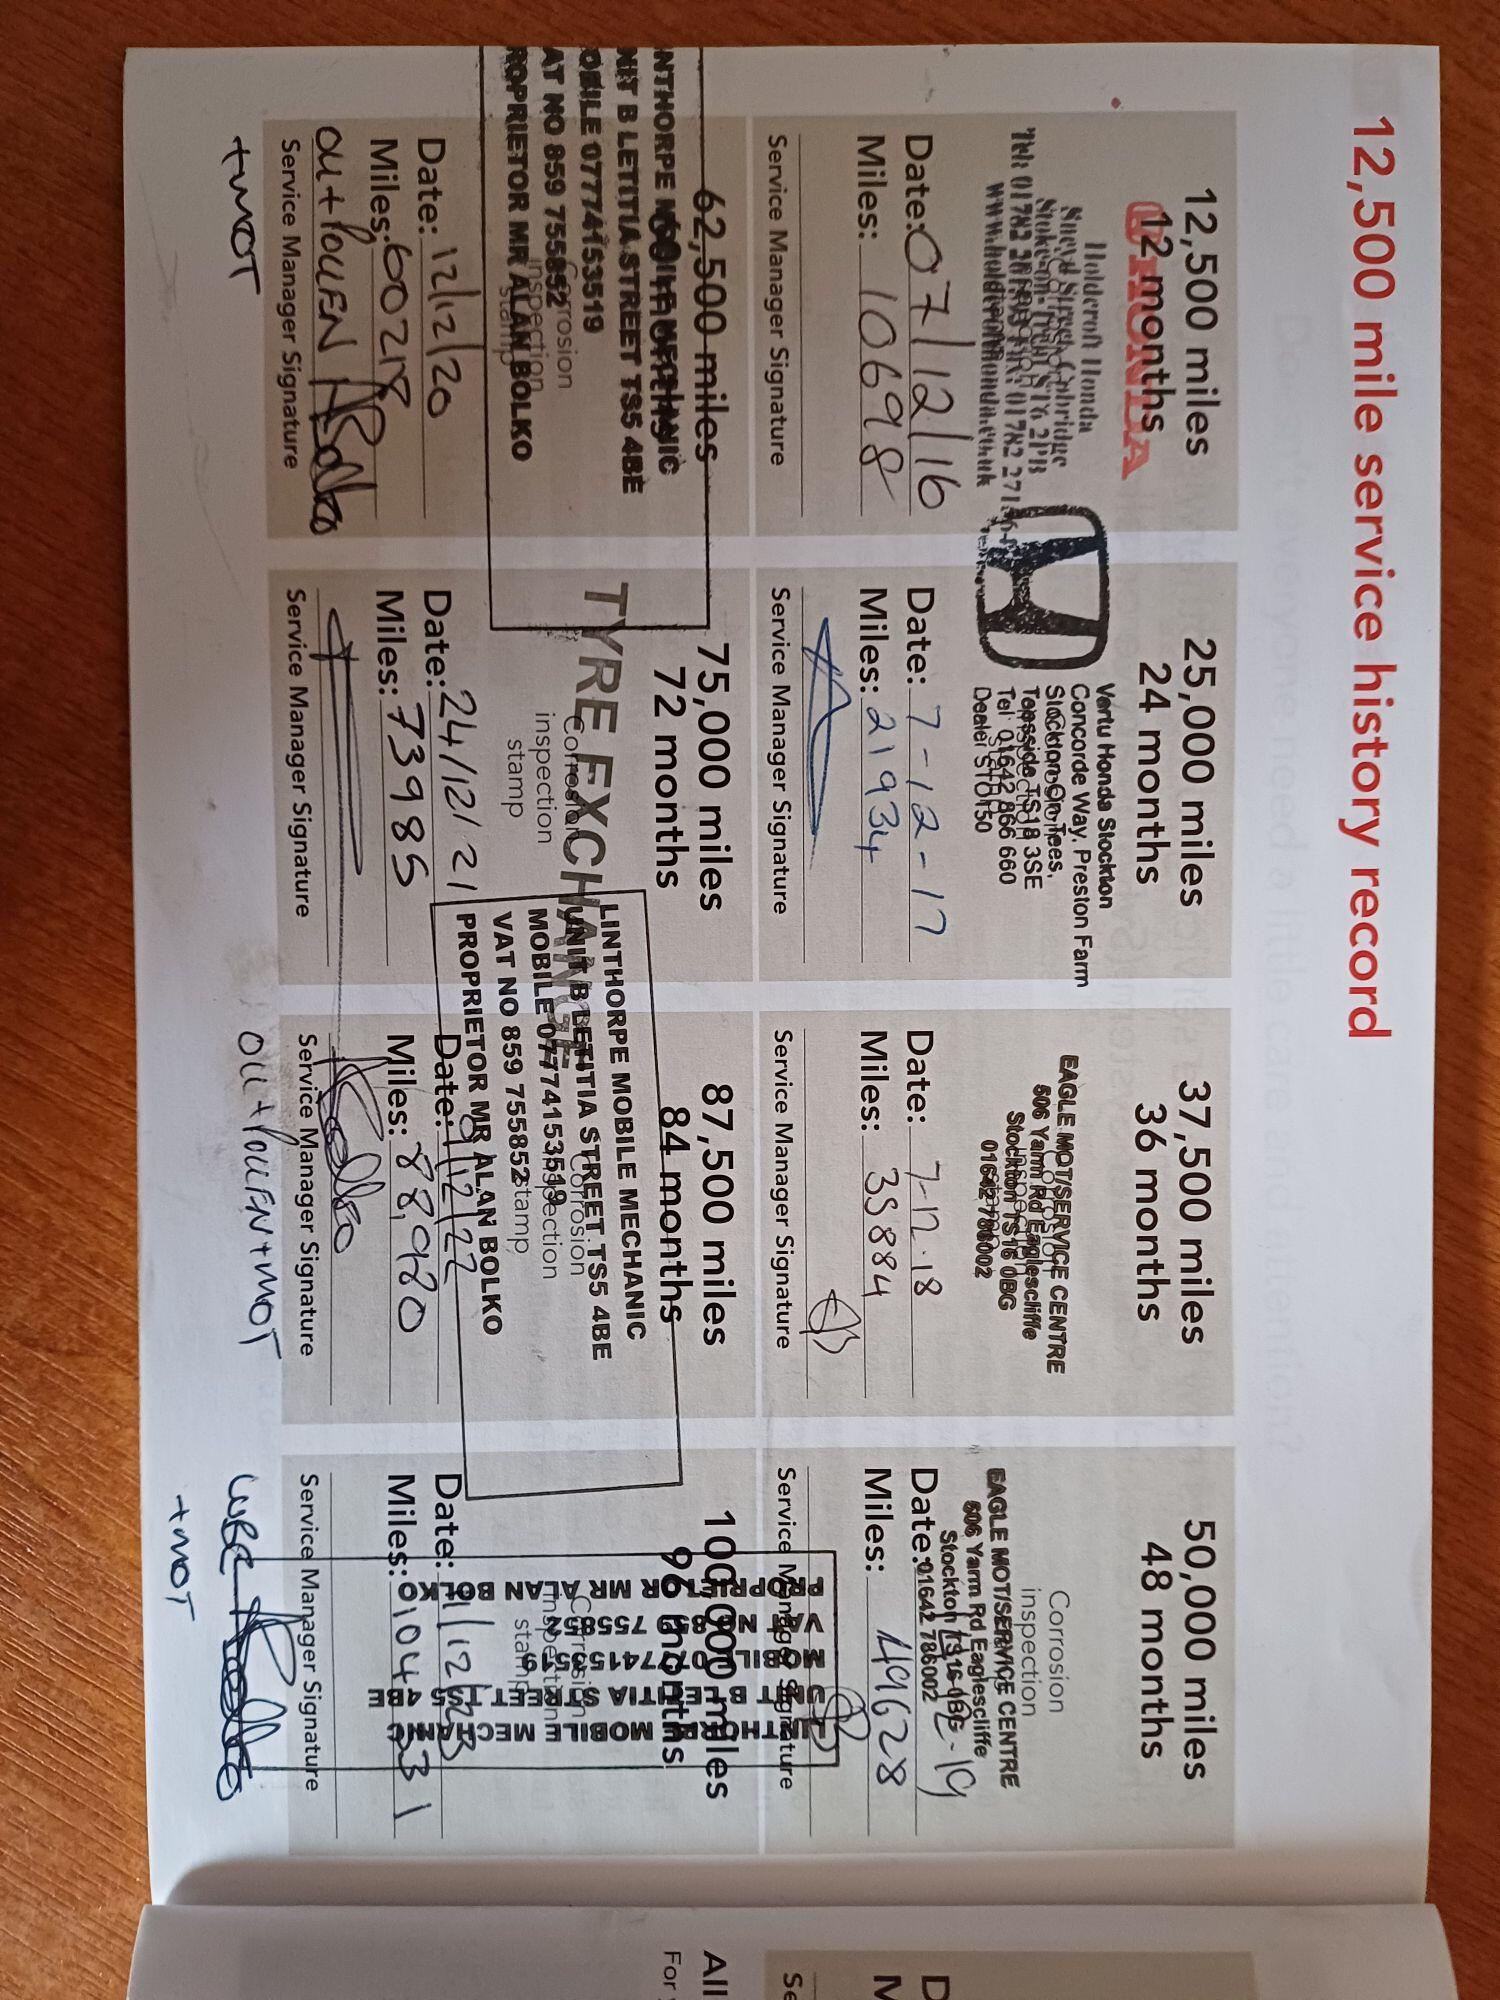 12,500 mile service history record
12,500 miles
12 months
Holdcroft Honda
Date: 07/12/16
Miles: 10698
Service Manager Signature
25,000 miles
24 months
Vertu Honda Stockton
Concorde Way, Preston Farm
Stockton On Tees,
Teesside TS18 3SE
Tel: 01642 866 660
Dealer STO150
Date: 7-12-17
Miles: 21934
Service Manager Signature
37,500 miles
36 months
EAGLE MOT/SERVICE CENTRE
506 Yarm Rd Eaglescliffe
Stockton TS16 0BG
01642 786002
Date: 7-12-18
Miles: 35884
Service Manager Signature
50,000 miles
48 months
Corrosion
inspection
EAGLE MOT/SERVICE CENTRE
506 Yarm Rd Eaglescliffe
Stockton TS16 0BG
01642 786002
Date:
Miles: 49628
Service Manager Signature
62,500 miles
INTHORPE MOBILE MECHANIC
NIT B LETITIA STREET TS5 4BE
OBILE 07774153519
AT NO 859 755852
ROPRIETOR MR ALAN BOLKO
Corrosion
inspection
stamp
Date: 12/12/20
Miles: 60218
OIL + POLLEN
Service Manager Signature
+ MOT
75,000 miles
72 months
TYRE EXCHANGE
Corrosion
inspection
stamp
Date: 24/12/21
Miles: 73985
Service Manager Signature
87,500 miles
84 months
LINTHORPE MOBILE MECHANIC
UNIT B LETITIA STREET TS5 4BE
MOBILE 07774153519
VAT NO 859 755852
PROPRIETOR MR ALAN BOLKO
Corrosion
inspection
stamp
Date: 9/12/22
Miles: 88,920
Service Manager Signature
OIL + POLLEN + MOT
100,000 miles
96 months
LINTHORPE MOBILE MECHANIC
UNIT B LETITIA STREET TS5 4BE
MOBILE 07774153519
VAT NO 859 755852
PROPRIETOR MR ALAN BOLKO
Date:
Miles: 104
Service Manager Signature
+ MOT
All
For